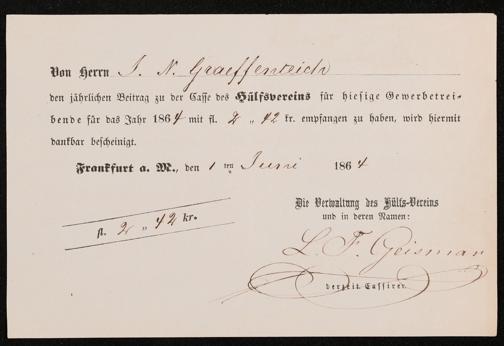 Von Herrn J. N. Graeffenteich
den jährlichen Beitrag zu der Casse des Hülfsvereins für hiesige Gewerbetrei-
bende für das Jahr 1864 mit fl. 2 „ 42 kr. empfangen zu haben, wird hiermit
dankbar bescheinigt.
Frankfurt a. M., den 1 ten Juni 1864
Die Verwaltung des Hülfs-Vereins
und in deren Namen:
fl. 2 „ 42 kr.
L. F. Geismar
derzeit Cassirer